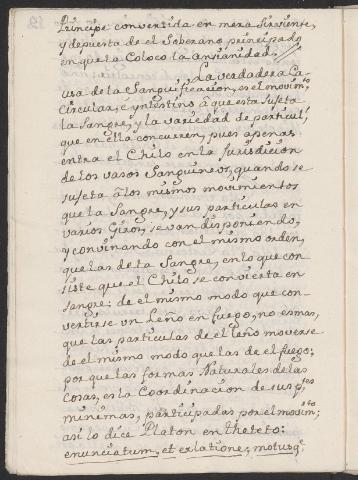 Principe convertida en mera sirviente,
y depuesta de el Soberano principado
en que la Coloco la antianidad.
La verdadera Ca-
usa de la Sanguificacion, es el movim.to
Circular, e yntestino â que esta sujeta
la Sangre, y la variedad de particul.s
que en ella concurren, pues apenas
entra el Chilo en la Jurisdicion
de los vasos Sanguineos, quando se
sujeta â los mismos movimientos
que la Sangre, y sus particulas en
varios Giros, se van disponiendo,
y convinando con el mismo orden,
que las de la Sangre, en lo que con
siste que el Chilo se convierta en
sangre: de el mismo modo que con-
vertirse vn leño en fuego, no es mas,
que las particulas de el leño moverse
de el mismo modo que las de el fuego;
por que las formas Naturales de las
Cosas, es la Coordinacion de sus p.tes
minimas, participadas por el movim.to;
asi lo dice Platon en theteto:
enunciatum, et exlatione; motusq.e